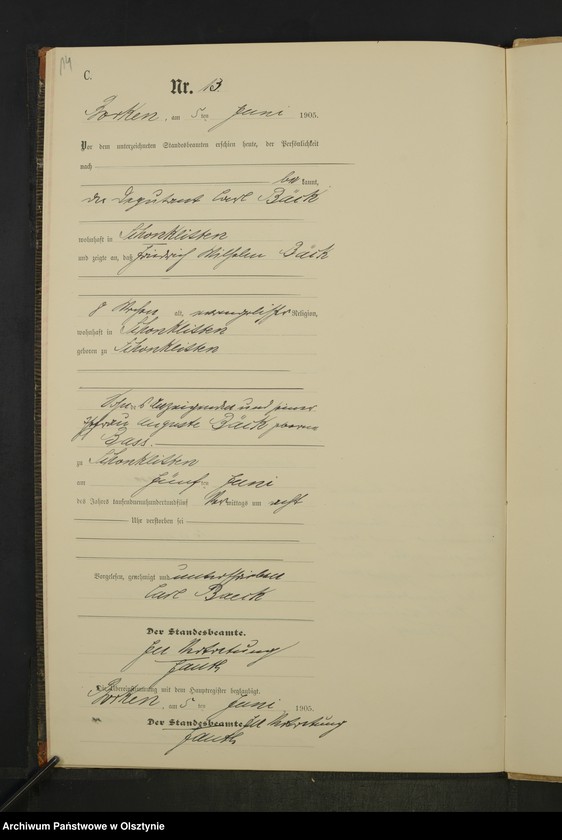 114
C.
Nr. 13.
Borken, am 5ten Juni 1905.
Vor dem unterzeichneten Standesbeamten erschien heute, der Persönlichkeit
nach
be kannt,
der Deputant Carl Bäck
wohnhaft in Schönklitten
und zeigte an, daß Friedrich Wilhelm Bäck
8 Wochen alt, evangelischer Religion,
wohnhaft in Schönklitten
geboren zu Schönklitten
Sohn des Anzeigenden und seiner
Ehefrau Auguste Bäck geborene
Bass.
zu Schönklitten
am fünften Juni
des Jahres tausendneunhundertundfünf Vormittags um acht
Uhr verstorben sei
Vorgelesen, genehmigt und unterschrieben
Carl Baeck
Der Standesbeamte.
In Vertretung
Die Übereinstimmung mit dem Hauptregister beglaubigt.
Borken, am 5ten Juni 1905.
Der Standesbeamte. In Vertretung
Archiwum Państwowe w Olsztynie